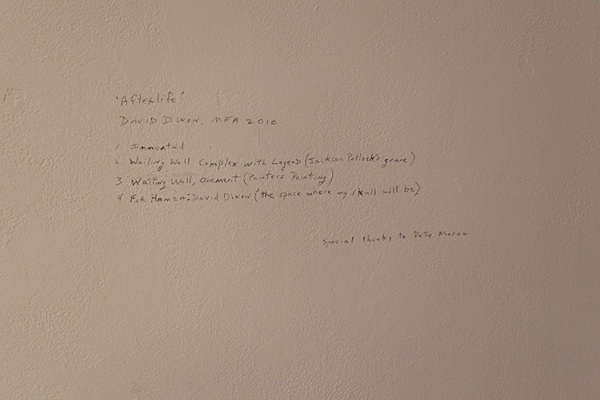 'Afterlife'
DAVID DIXON, MFA 2010
1. Immortal
2. Wailing Wall Complex with Legend (Jackson Pollock's grave)
3 Waiting Wall, (Painters Painting)
4 FOR David Dixon (the space where my skull will be)
Special thanks to Pete Moran